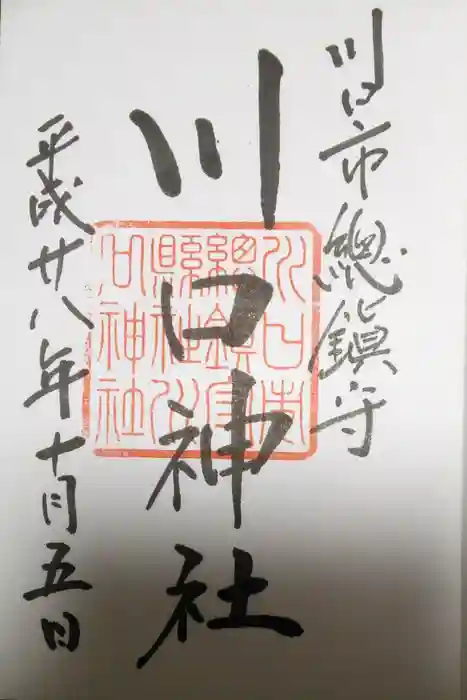 川口市總鎮守
川口神社
平成廿八年十月五日
川口市
總鎮守
縣社川
口神社